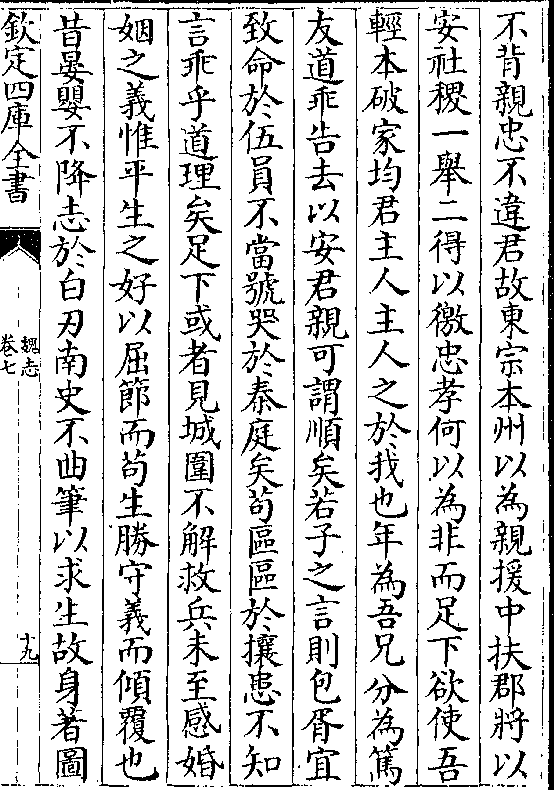 不背親忠不違君故東宗本州以為親援中扶郡將以
安社稷一舉二得以徼忠孝何以為非而足下欲使吾
輕本破家均君主人主人之於我也年為吾兄分為篤
友道乖告去以安君親可謂順矣若子之言則包胥宜
致命於伍員不當號哭於秦庭矣苟區區於攘患不知
言乖乎道理矣足下或者見城圍不解救兵未至感婚
姻之義惟平生之好以屈節而苟生勝守義而傾覆也
昔晏嬰不降志於白刃南史不曲筆以求生故身著圖
欽定四庫全書
魏志
卷七
十九